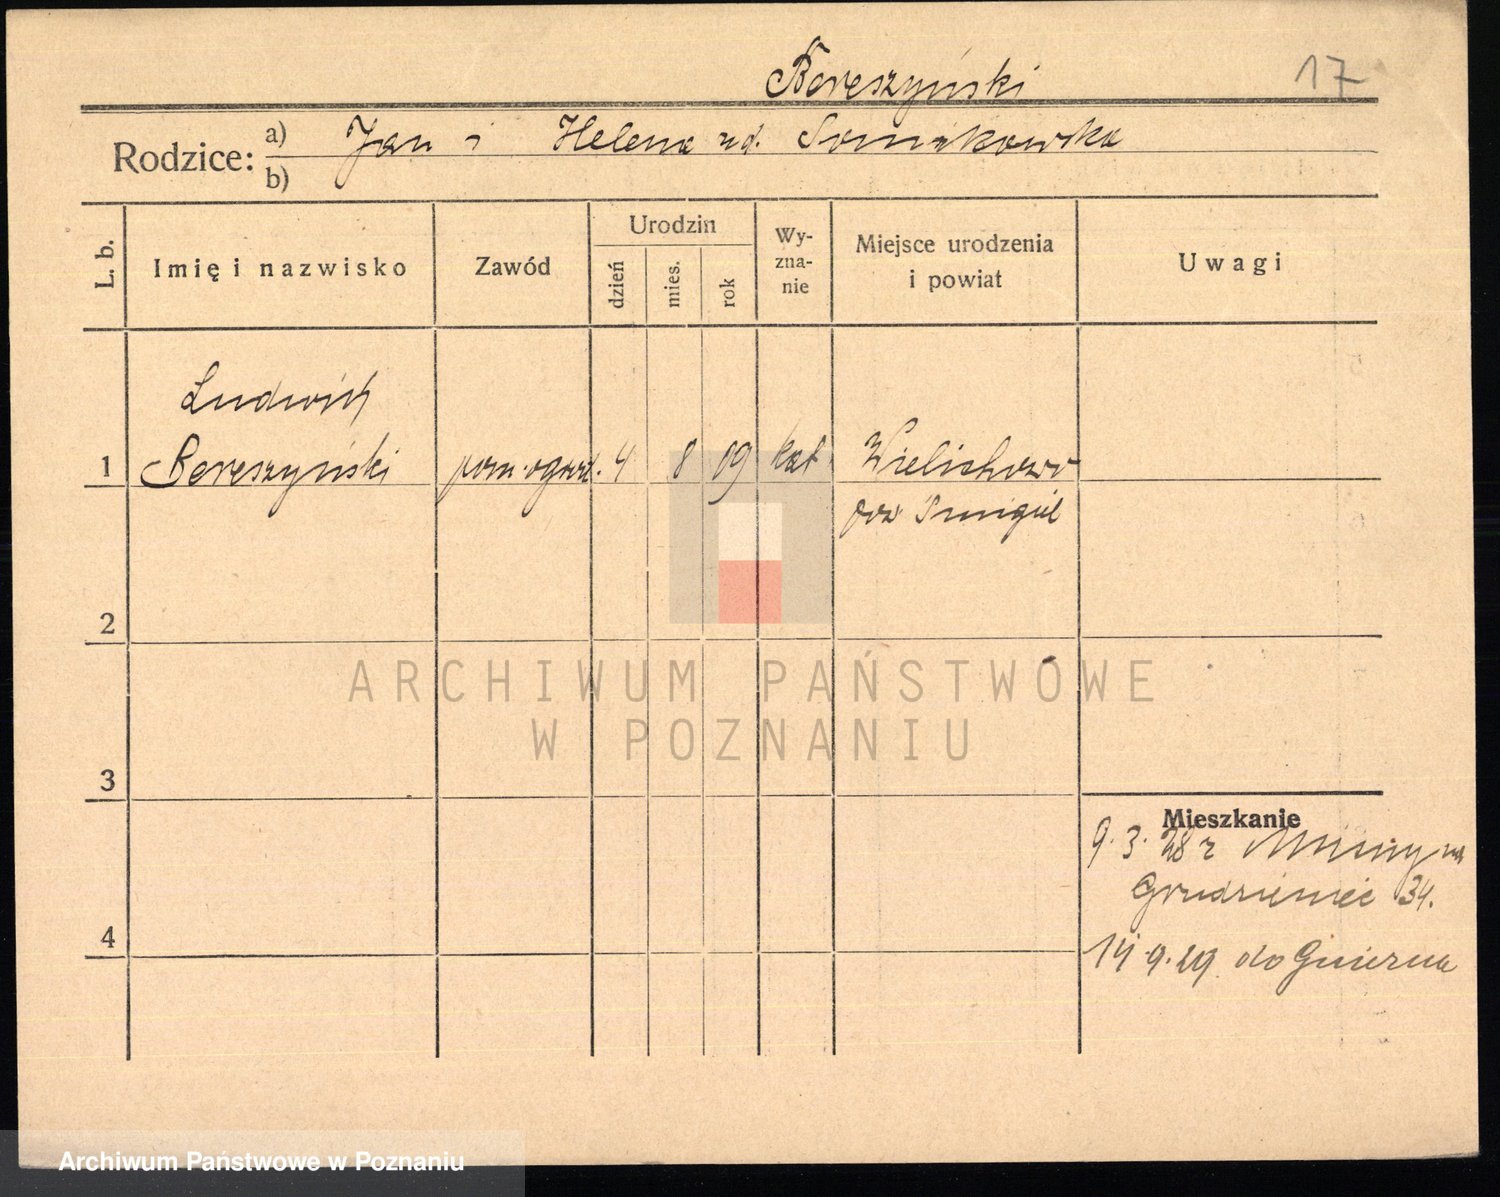 Boreszyński 17
Rodzice: a) Jan i Helena zd.
b)
L. b. Imię i nazwisko Zawód Urodzin dzień mies. rok Wyznanie Miejsce urodzenia i powiat Uwagi
Ludwik
1 Boreszyński pom. ogrod. 4 8 09 kat Wielichowo
pow Śmigiel
2
ARCHIWUM PAŃSTWOWE
W POZNANIU
3
Mieszkanie
9. 3. 28 z
Grudzieniec 34.
4 14 9. 29 do Gniezna
Archiwum Państwowe w Poznaniu